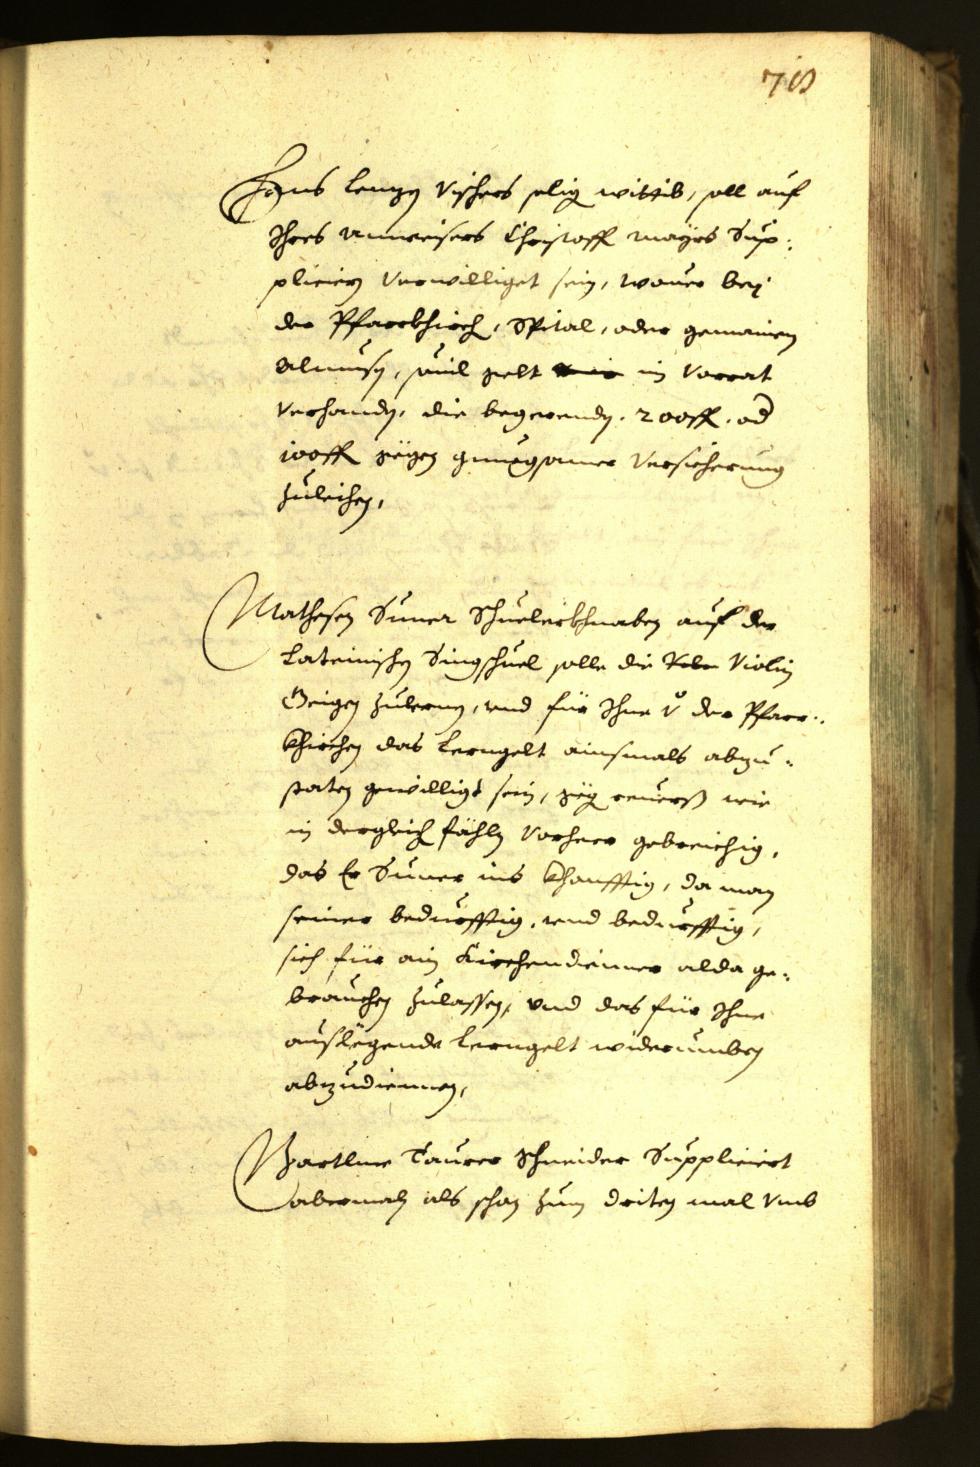 78
Hans Lenzn Vischers selig wittib, soll auf
Ihres Anweisers Christoff mayrs Sup=
plicien verwilliget sein, wouer bey
der Pfarrkhirch, Spital, oder gemainen
Almusn, souil gelt in Vorrat
verhandn, die begerenden 200 fl. od
100 fl gegen gnuegsamer Versicherung
zuleihen,
Mathesen Suner Schuelerkhnaben auf der
Lateinischen Singschuel solle die Violin
Geigen zulernen, vnd für Ihne v der Pfarr=
khirchen das Lerngelt ainsmals abzu=
statten gewilligt sein, gegen reuerß wie
in dergleich fähln vorheer gebreichig,
das Er Suner ins khonfftig, da man
seiner bedürfftig, vnd bedürfftig,
sich für ain Kirchendienner alda ge=
brauchen zulassen, vnd das für Ihne
auslegende Lerngelt widerumben
abzudiennen,
Bartlme Taurer Schneider Suppliciert
abermals als schon zum driten mal vmb